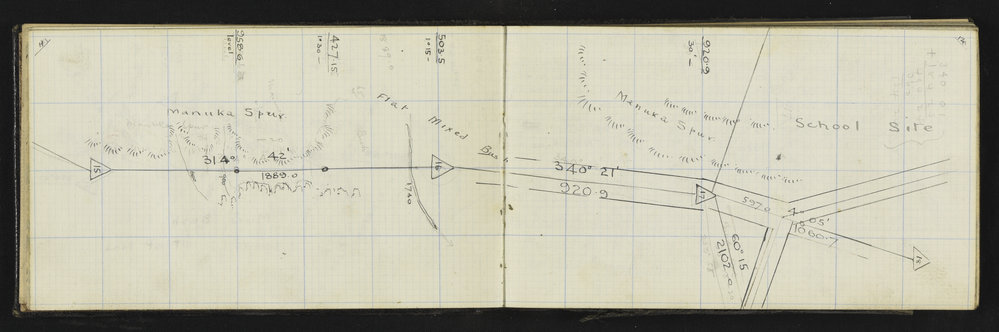 958·6
level
427·15
1°30'-
503·5
1°15-
Manuka Spur
Flat
Mixed
Bush
15
314° 42'
1889·0
1740
16
920·9
30' -
Manuka Spur
School Site
340° 21'
920·9
17
597·0
4° 05'
1080·7
60° 15
2102·9
18